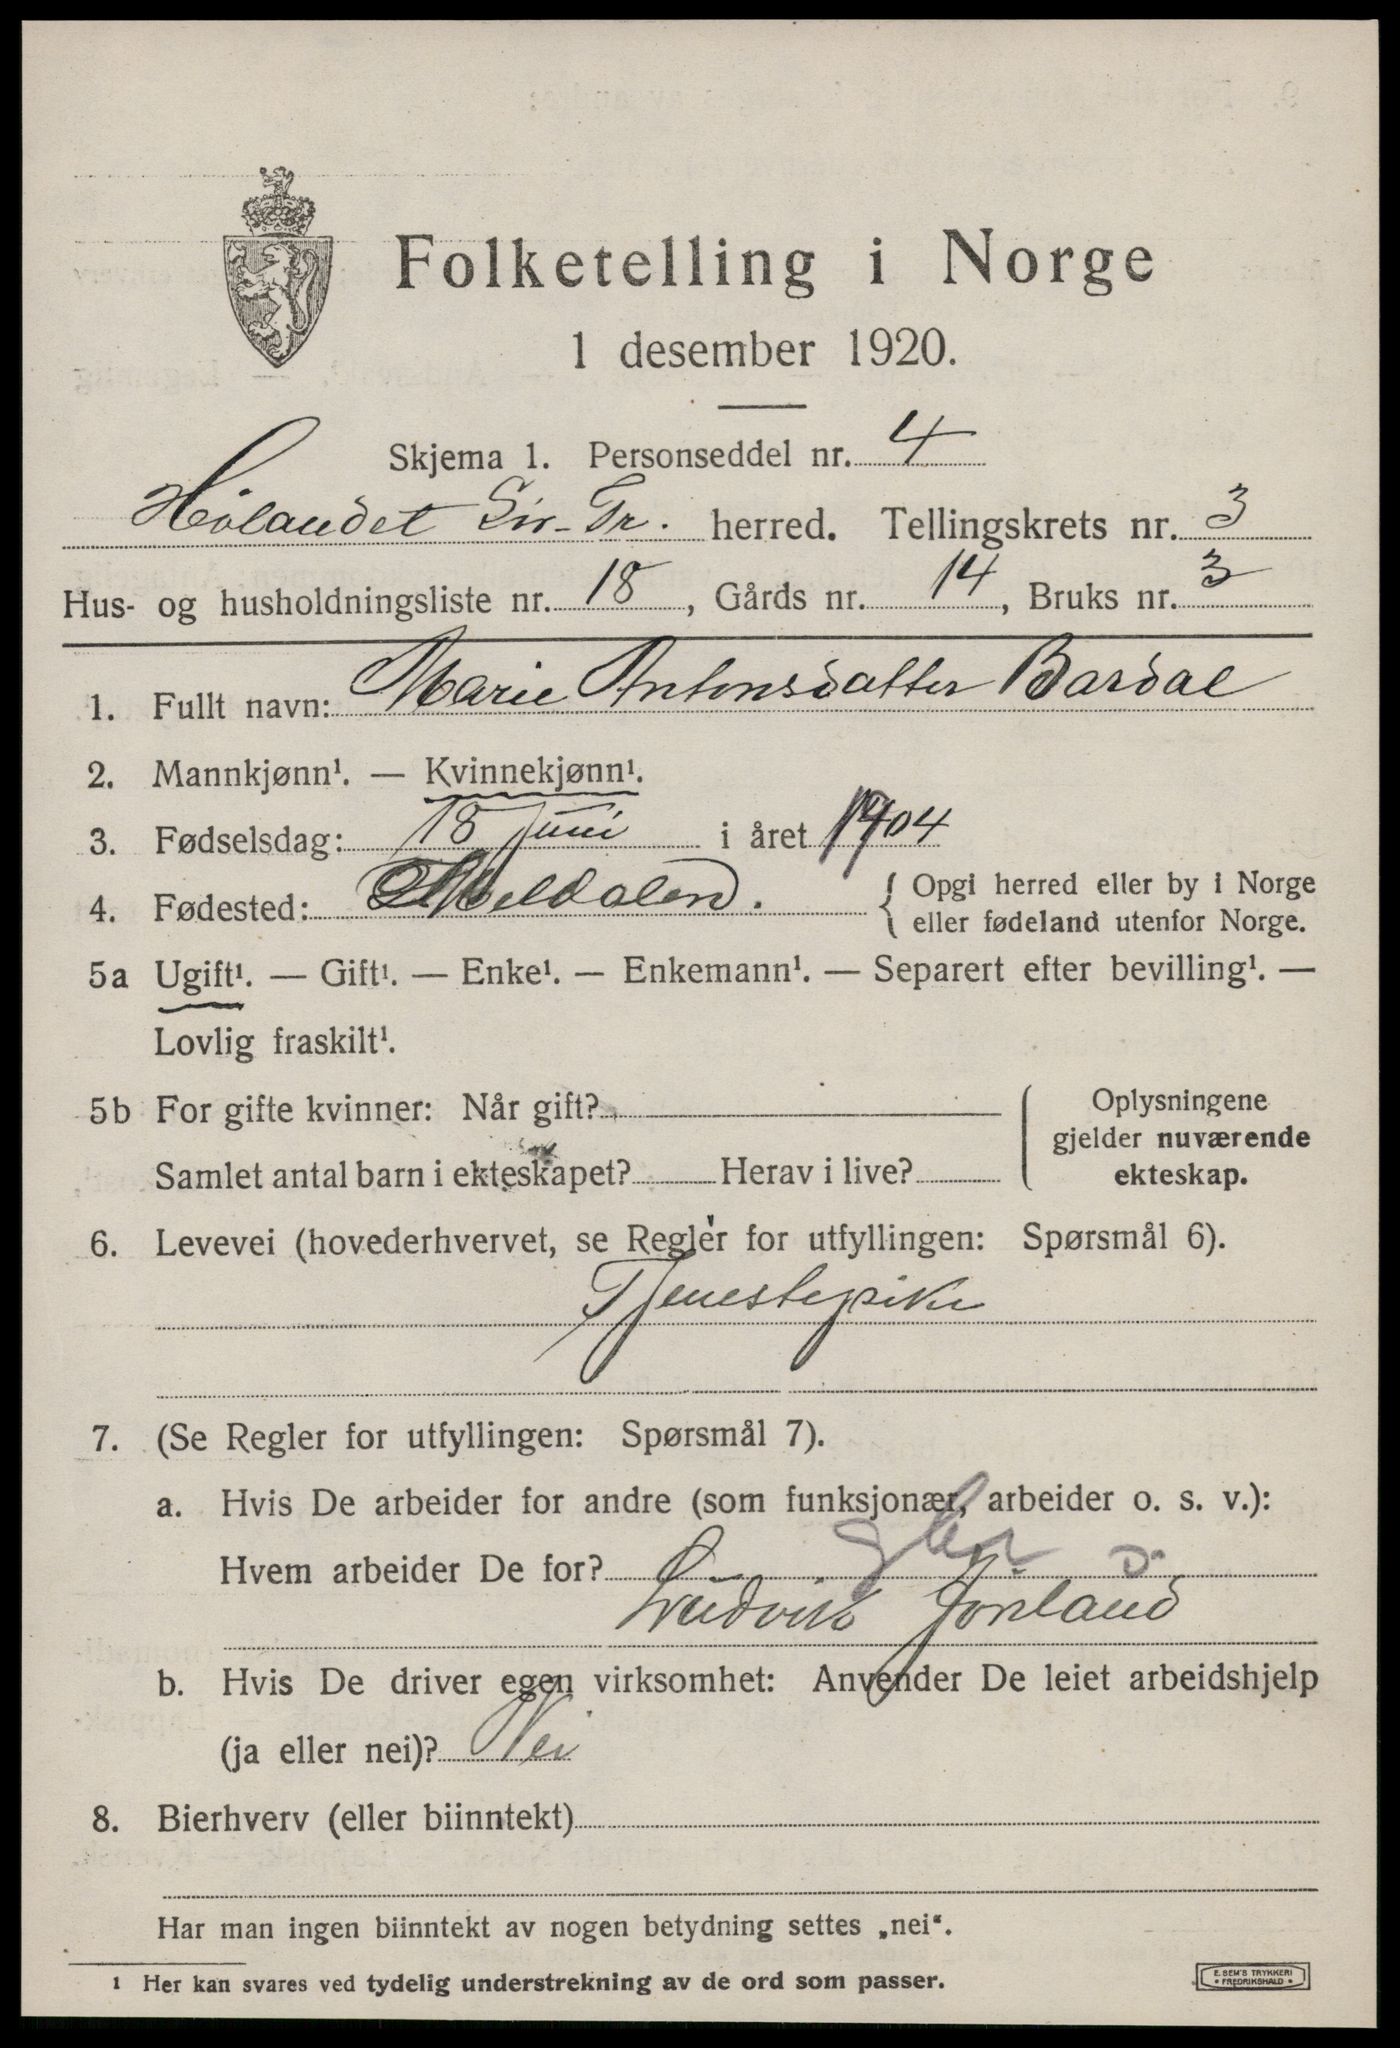 Folketelling i Norge
1 desember 1920.
Skjema 1. Personseddel nr. 4
Hølandet Sør-Tr. herred. Tellingskrets nr. 3
Hus- og husholdningsliste nr. 18, Gårds nr. 14, Bruks nr. 3
1. Fullt navn: Marie Antonsdatter Bardal
2. Mannkjønn¹. — Kvinnekjønn¹.
3. Fødselsdag: 18 Juni i året 1904
4. Fødested: Meldalen. { Opgi herred eller by i Norge
eller fødeland utenfor Norge.
5a Ugift¹. — Gift¹. — Enke¹. — Enkemann¹. — Separert efter bevilling¹. —
Lovlig fraskilt¹.
5b For gifte kvinner: Når gift?
Samlet antal barn i ekteskapet? Herav i live?
Oplysningene
gjelder nuværende
ekteskap.
6. Levevei (hovederhvervet, se Regler for utfyllingen: Spørsmål 6).
Tjenestepike
7. (Se Regler for utfyllingen: Spørsmål 7).
a. Hvis De arbeider for andre (som funksjonær, arbeider o. s. v.):
Hvem arbeider De for? gbr
Ludvik Jorland
b. Hvis De driver egen virksomhet: Anvender De leiet arbeidshjelp
(ja eller nei)? Nei
8. Bierhverv (eller biinntekt)
Har man ingen biinntekt av nogen betydning settes „nei“.
¹ Her kan svares ved tydelig understrekning av de ord som passer.
E. SEM'S TRYKKERI
• FREDRIKSHALD •